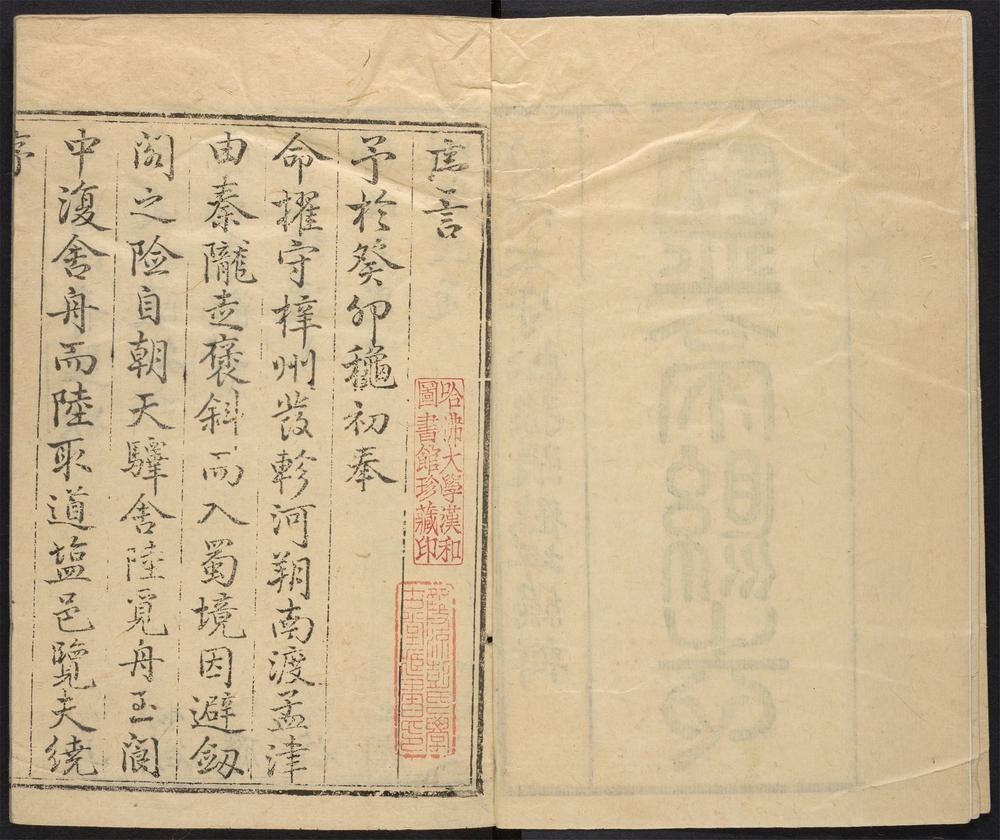 言
予於癸卯穐初奉
命擢守梓州發軫河朔南渡孟津
由秦隴走褒斜而入蜀境因避劔
閣之險自朝天驛舍陸覓舟至閬
中復舍舟而陸取道塩邑覽夫繞
序
哈佛大學漢和
圖書館珍藏印